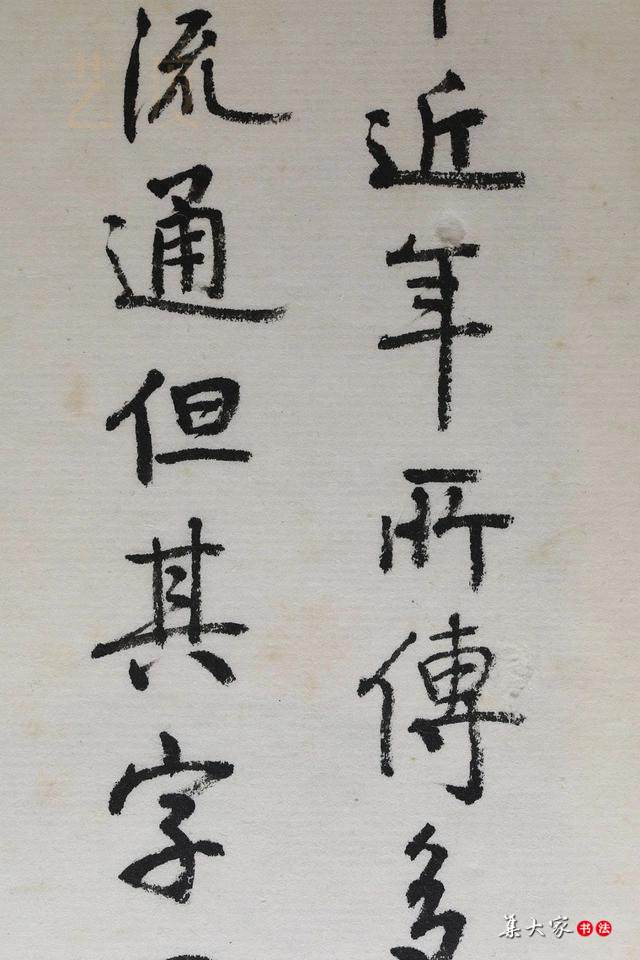 近年所傳多
流通但其字
集大家书法